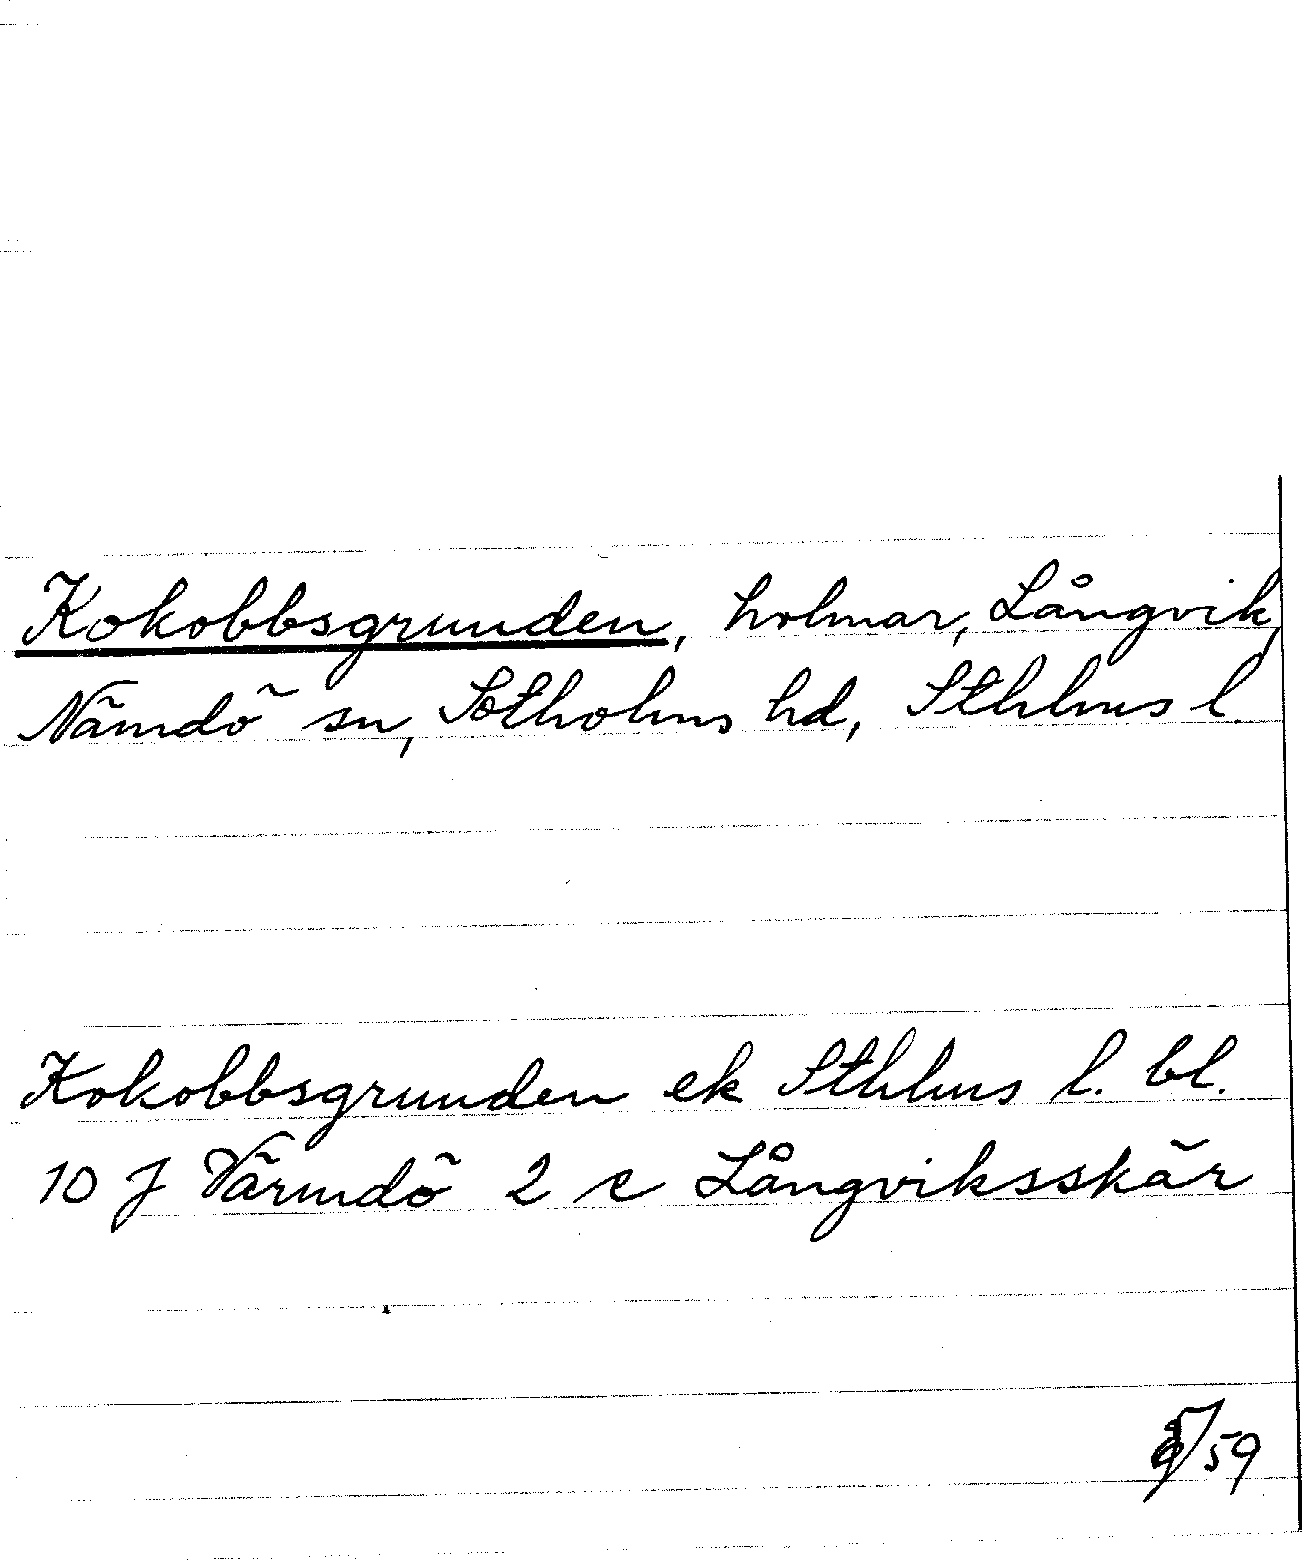 Kokobbsgrunden, holmar, Långvik,
Nämdö sn, Sotholms hd, Sthlms l.
Kokobbsgrunden ek Sthlms l. bl.
10 J Värmdö 2 c Långviksskär
59